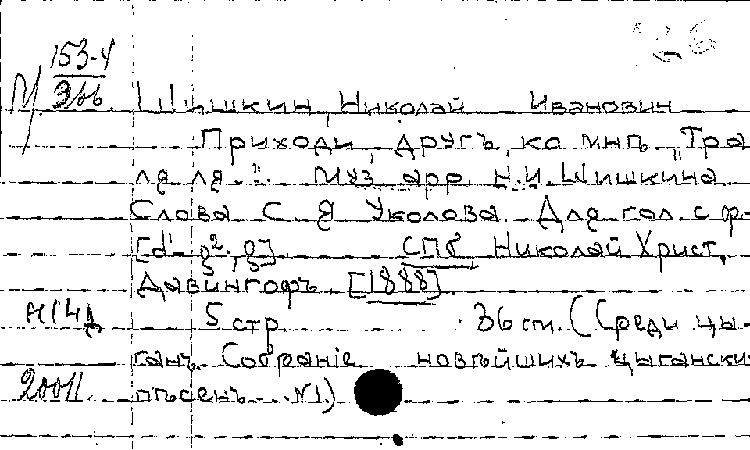 26
М 153-4
Шишкин, Николай Иванович
Приходи, другъ, ко мнѣ, „Тра
ля ля.." Муз арр Н.И.Шишкина
Слова С Я Уколова. Для гол. с ф-
СПб Николай Христ.
Давингофъ [1888]
Н/4Д 5 стр 36 cm. (Среди цы-
ганъ. Собранiе новѣйшихъ цыгански
200 пѣсенъ. N1.)